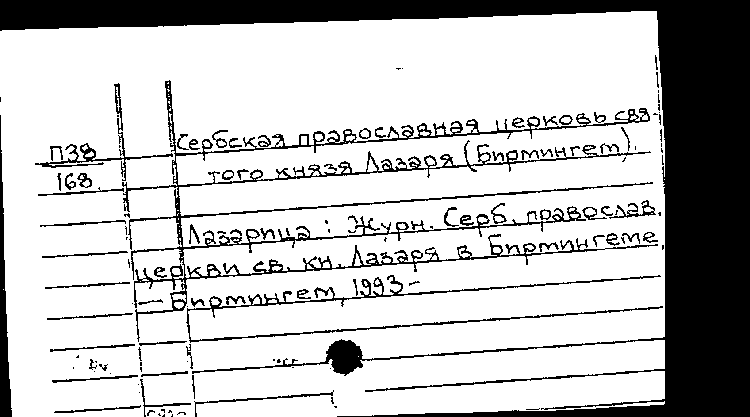 П38
168
Сербская православная церковь свя-
того князя Лазаря (Бирмингем).
Лазарица : Журн. Серб. православ.
церкви св. кн. Лазаря в Бирмингеме.
— Бирмингем, 1993 —